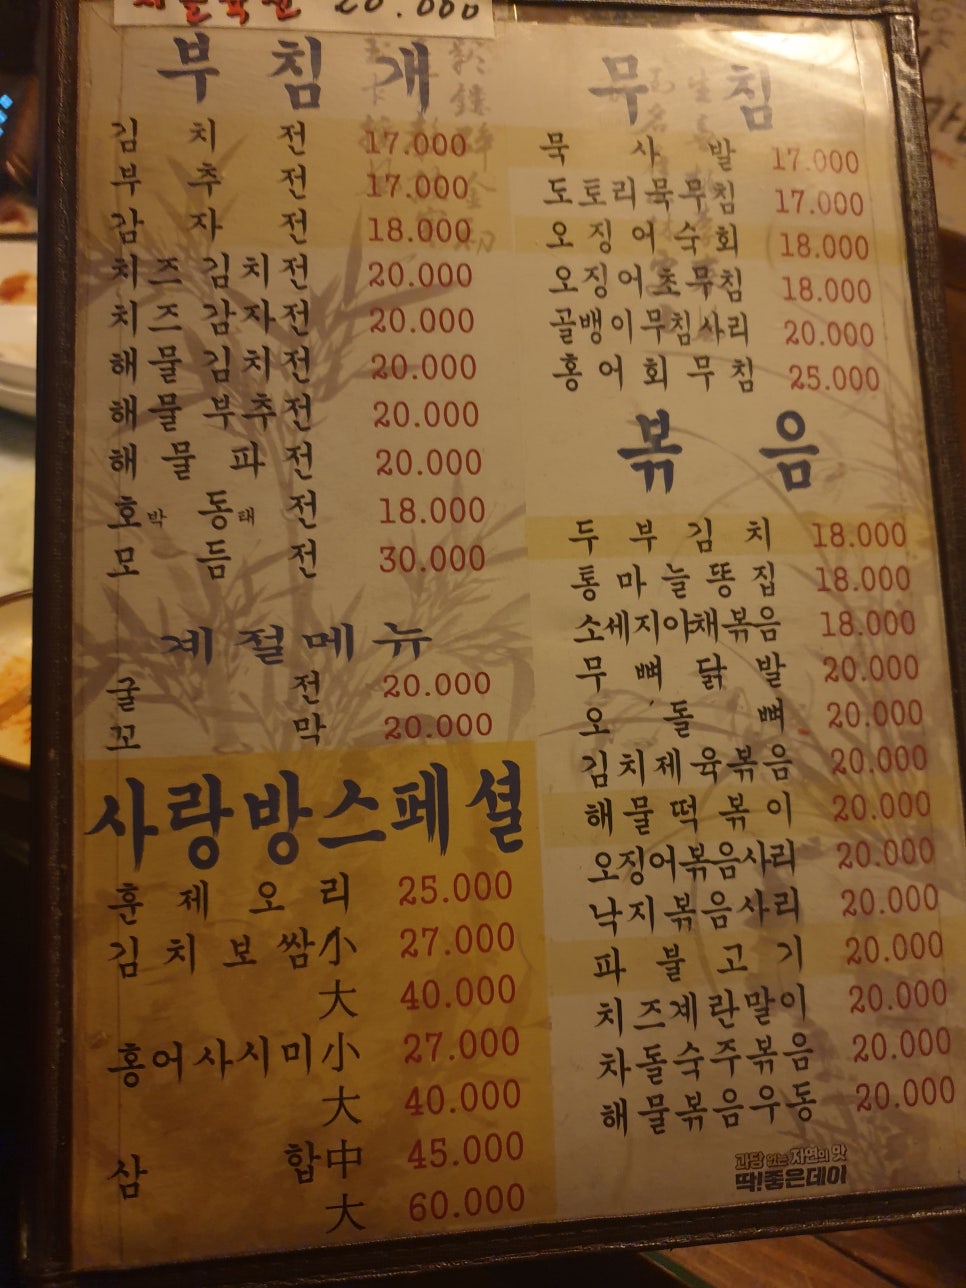 20.000
부침개
김치전 17.000
부추전 17.000
감자전 18.000
치즈김치전 20.000
치즈감자전 20.000
해물김치전 20.000
해물부추전 20.000
해물파전 20.000
호박동태전 18.000
모듬전 30.000
계절메뉴
굴전 20.000
꼬막 20.000
사랑방스페셜
훈제오리 25.000
김치보쌈小 27.000
大 40.000
홍어사시미小 27.000
大 40.000
삼합中 45.000
大 60.000
무침
묵사발 17.000
도토리묵무침 17.000
오징어숙회 18.000
오징어초무침 18.000
골뱅이무침사리 20.000
홍어회무침 25.000
볶음
두부김치 18.000
통마늘똥집 18.000
소세지야채볶음 18.000
무뼈닭발 20.000
오돌뼈 20.000
김치제육볶음 20.000
해물떡볶이 20.000
오징어볶음사리 20.000
낙지볶음사리 20.000
파불고기 20.000
치즈계란말이 20.000
차돌숙주볶음 20.000
해물볶음우동 20.000
과당 없는 자연의 맛
딱!좋은데이